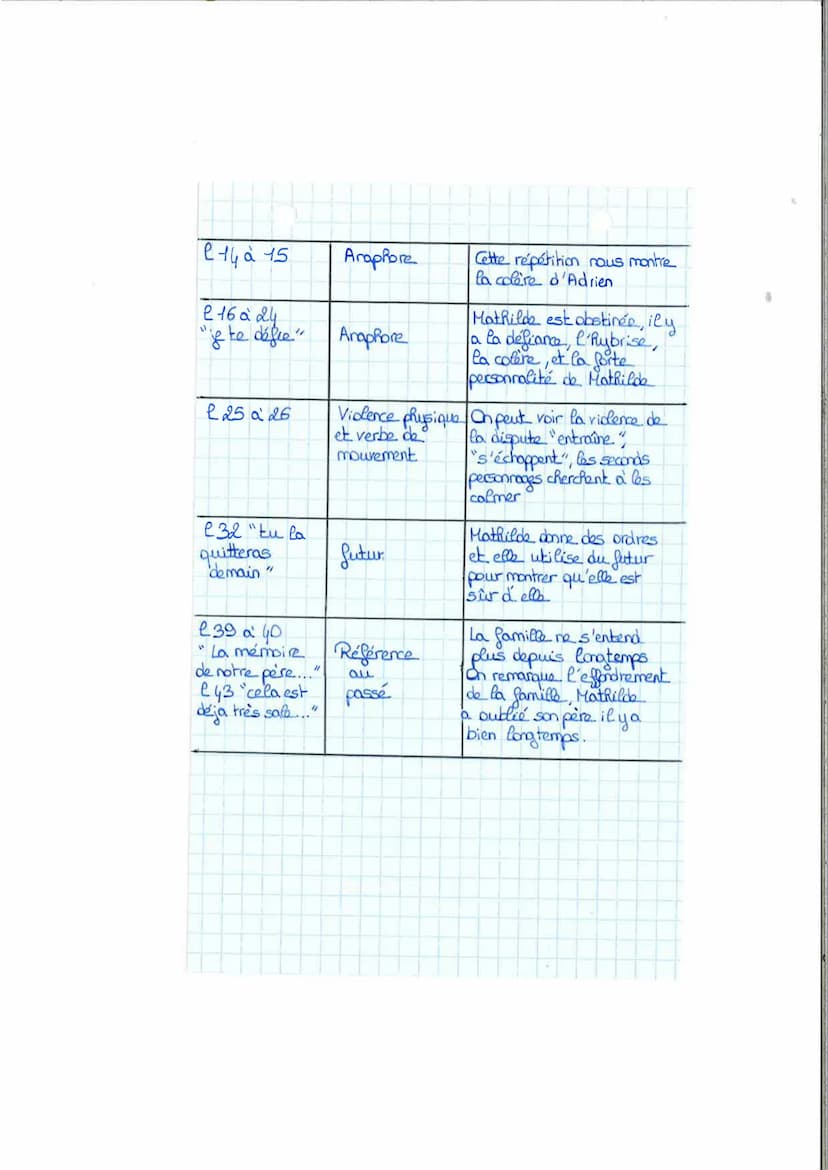 l 14 à 15
Anaphore
Cette répétition nous montre
la colère d'Adrien
l 16 à 24
"je te défie"
Anaphore
Mathilde est obstinée, il y
a la défiance, l'hybrise,
la colère, et la forte
personnalité de Mathilde
l 25 à 26
Violence physique
et verbe de
mouvement
On peut voir la violence de
la dispute "entraîne",
"s'échappent", les seconds
personnages cherchent à les
calmer
l 32 "tu la
quitteras
demain"
futur
Mathilde donne des ordres
et elle utilise du futur
pour montrer qu'elle est
sûr d'elle
l 39 à 40
"La mémoire
de notre père..."
l 43 "cela est
déja très sale..."
Référence
au
passé
La famille ne s'entend
plus depuis longtemps
On remarque l'effondrement
de la famille, Mathilde
a oublié son père il y a
bien longtemps.